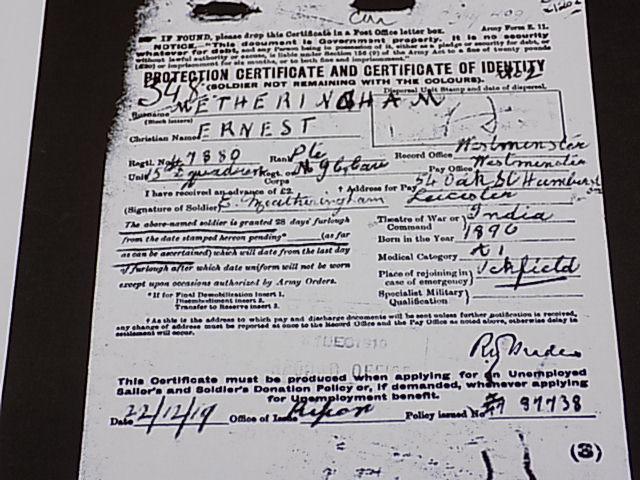 IF FOUND, please drop this Certificate in a Post Office letter box. Army Form E. 11.
NOTICE.—"This document is Government property. It is no security
whatever for debt, and any Person being in possession of it, either as a pledge or security for debt, is
without lawful authority or excuse, liable under Section 156 (9) of the Army Act to a fine of twenty pounds
(£20) or imprisonment for six months, or to both fine and imprisonment."
PROTECTION CERTIFICATE AND CERTIFICATE OF IDENTITY
(SOLDIER NOT REMAINING WITH THE COLOURS).
Dispersal Unit Stamp and date of dispersal.
348
Surname METHERINGHAM
(Block letters)
Christian Name ERNEST
Regtl. No. 7880 Rank Pte Record Office Westminster
Unit 15 Squadron Regt. or Corps Pay Office Westminster
I have received an advance of £2. † Address for Pay 54 Oak St Humberst
(Signature of Soldier) E. Metheringham Leicester
The above-named soldier is granted 28 days' furlough
from the date stamped hereon pending* (as far
as can be ascertained) which will date from the last day
of furlough after which date uniform will not be worn
except upon occasions authorized by Army Orders.
*If for Final Demobilization insert 1.
Disembodiment insert 2.
Transfer to Reserve insert 3.
Theatre of War or Command India
Born in the Year 1896
Medical Category A 1
Place of rejoining in case of emergency
Specialist Military Qualification
† As this is the address to which pay and discharge documents will be sent unless further notification is received,
any change of address must be reported at once to the Record Office and the Pay Office as noted above, otherwise delay in
settlement will occur.
DEC 1919
RECORD OFFICE
This Certificate must be produced when applying for an Unemployed
Sailor's and Soldier's Donation Policy or, if demanded, whenever applying
for Unemployment benefit.
Date 22/12/19 Office of Issue Ripon Policy issued No 97738
(3)